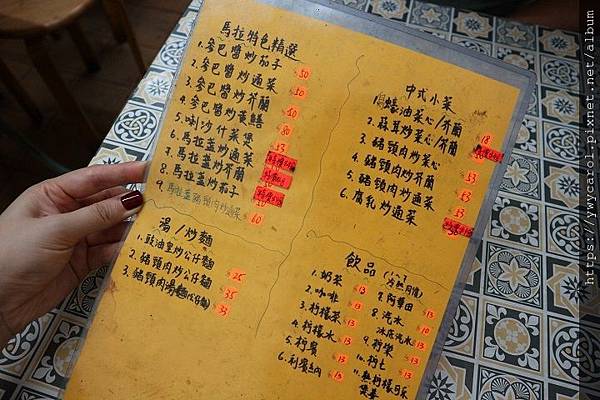 馬拉特色精選
1. 參巴醬炒茄子 50
2. 參巴醬炒通菜 50
3. 參巴醬炒芥蘭 50
4. 參巴醬炒黃鱔 80
5. 喇沙什菜煲 53
6. 馬拉盞炒通菜
7. 馬拉盞炒芥蘭
8. 馬拉盞炒茄子
9. 馬拉盞豬頸肉炒通菜 60
中式小菜
1. 蠔油菜心/芥蘭 18
2. 蒜茸炒菜心/芥蘭
3. 豬頸肉炒菜心 53
4. 豬頸肉炒芥蘭 53
5. 豬頸肉炒通菜 53
6. 腐乳炒通菜
湯/炒麵
1. 豉油皇炒公仔麵 25
2. 豬頸肉炒公仔麵 35
3. 豬頸肉湯麵(公仔麵) 33
飲品
1. 奶茶 13
2. 咖啡 13
3. 檸檬茶 13
4. 檸檬水 13
5. 檸賓 13
6. 利賓納 13
7. 阿華田 13
8. 汽水 10
冰底汽水 13
9. 檸樂 13
10. 檸七 13
11. 熱檸檬可樂
煲薑 13
https://ywycarol.pixnet.net/album